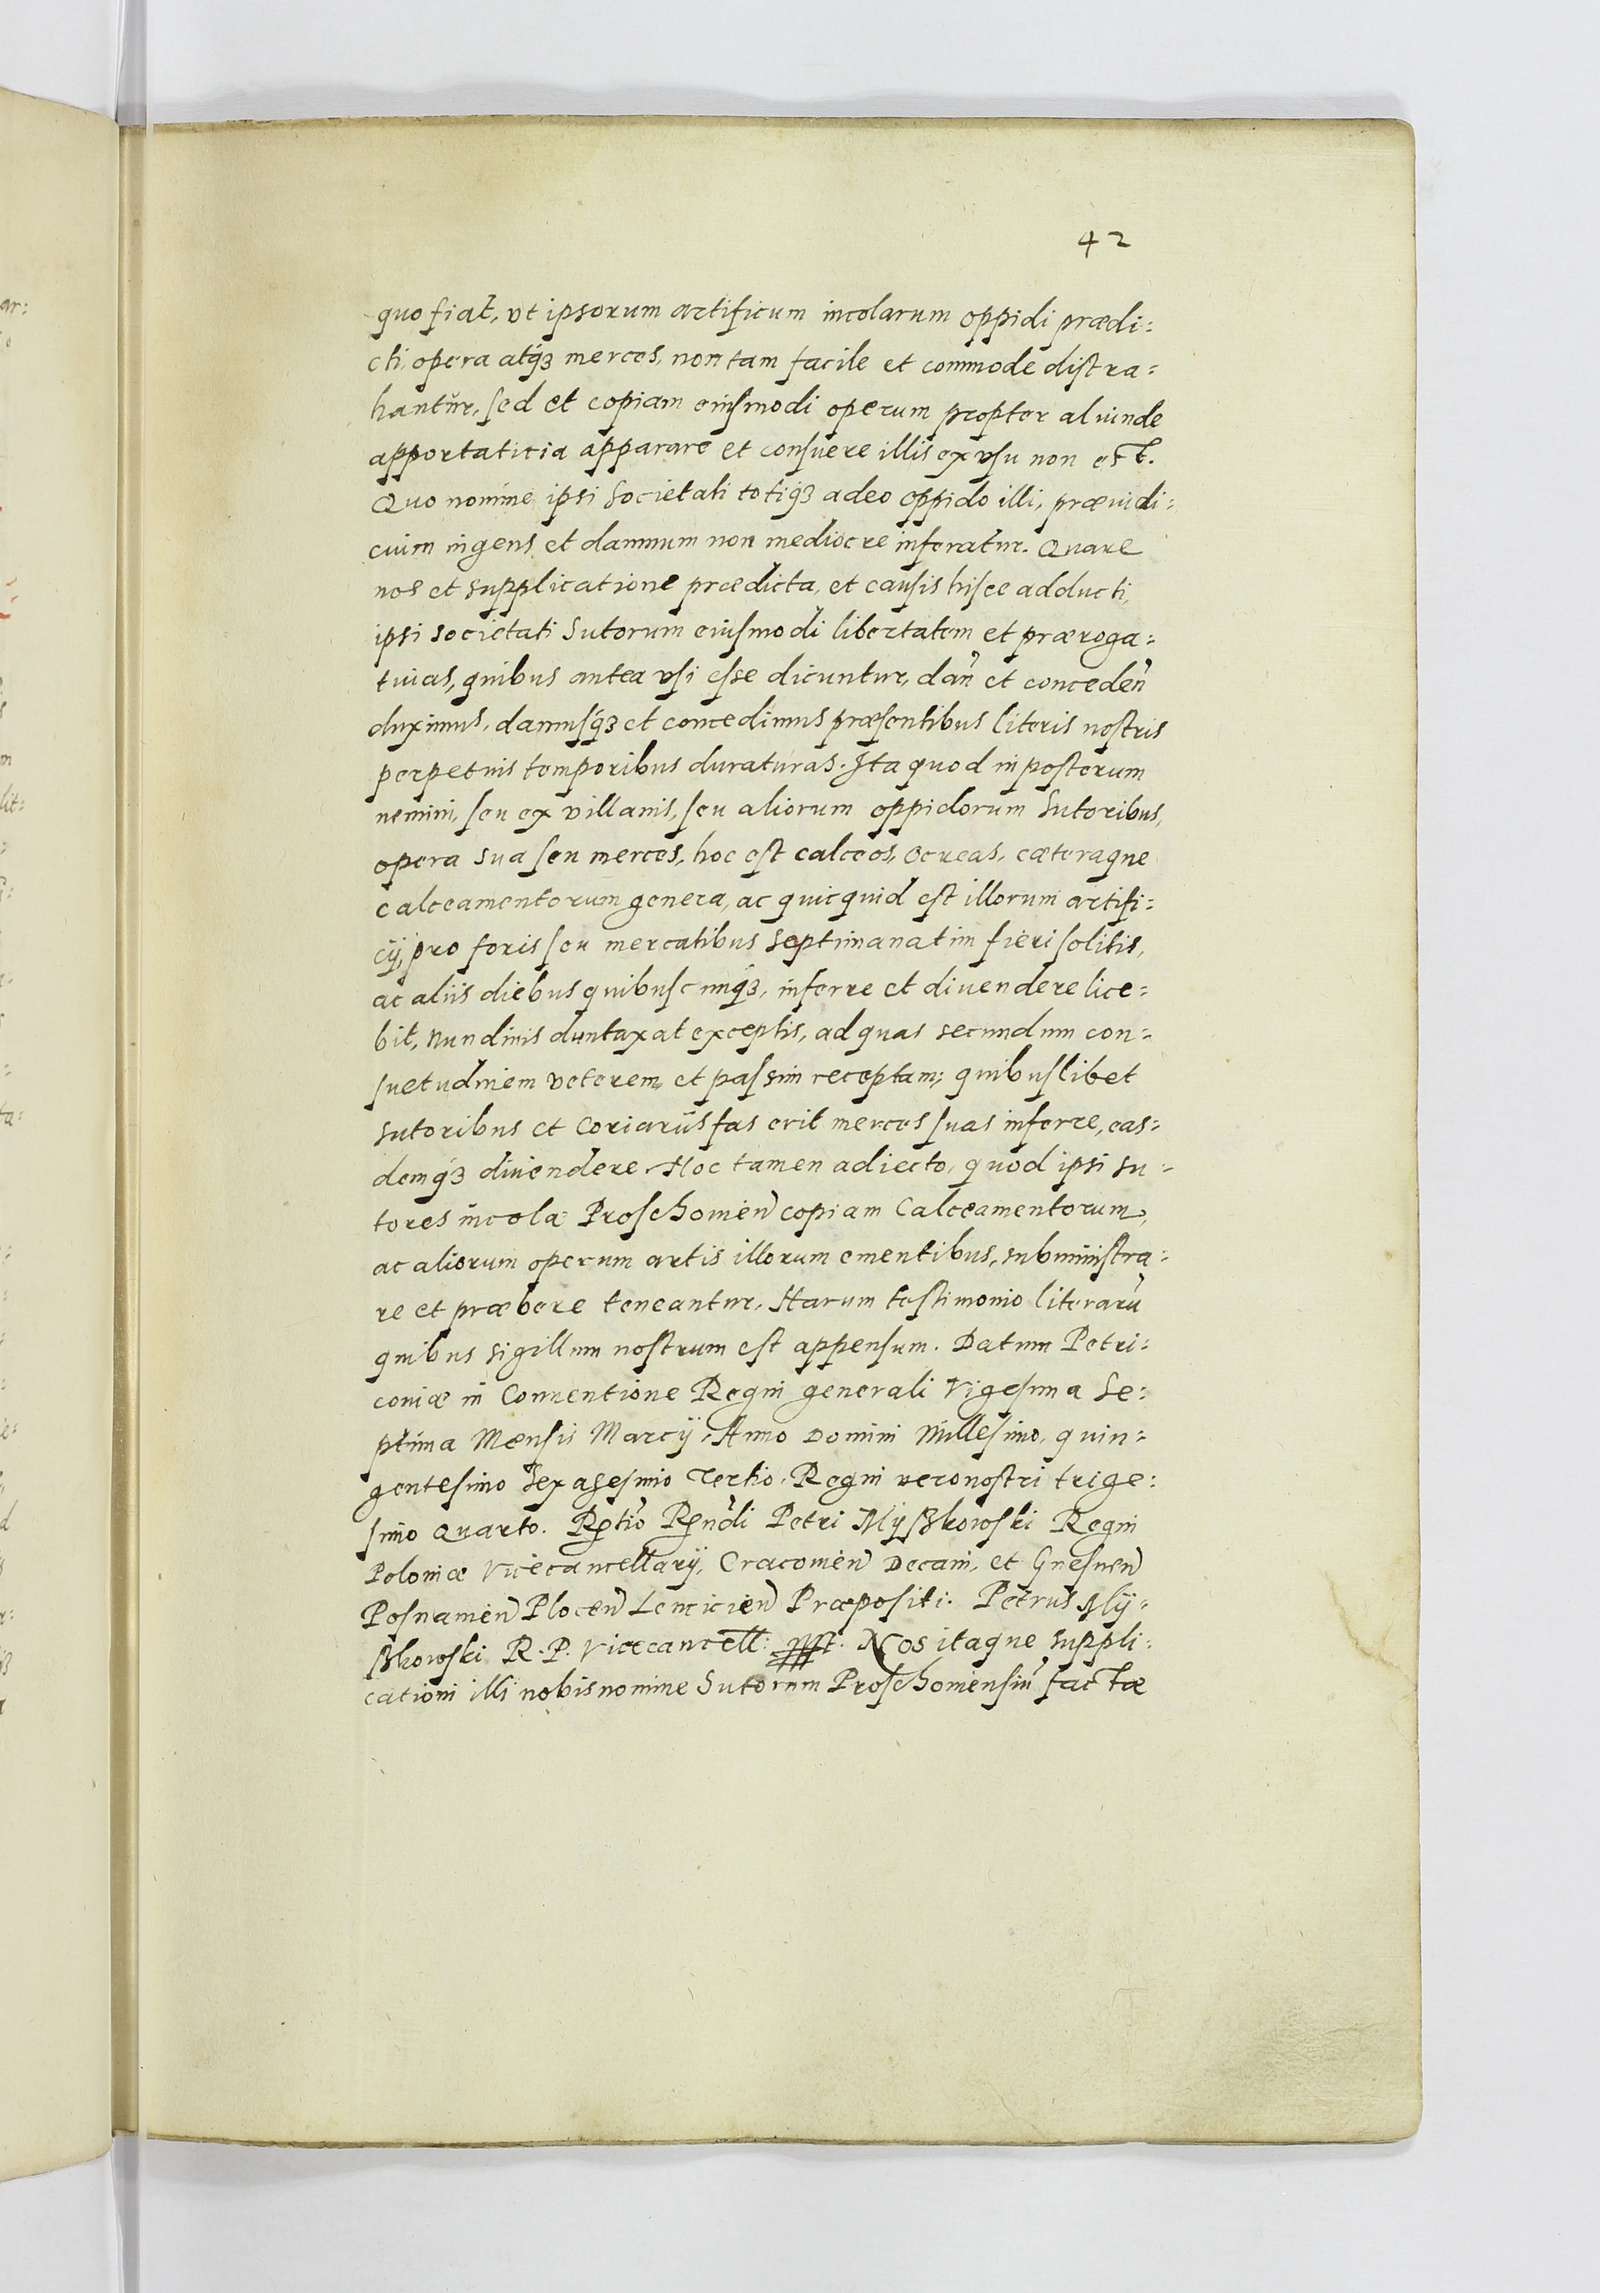 42
quo fiat, vt ipsorum artificum incolarum oppidi prædi:
cti, opera atqȝ merces, non tam facile et commode diſtra:
hantur, ſed et copiam eiuſmodi operum propter aliunde
apportatitia apparare et conſuere illis ex vſu non est.
Quo nomine ipsi Societati totiqȝ adeo oppido illi, præiudi:
cium ingens et damnum non mediocre inferatur. Quare
nos et supplicatione prædicta, et cauſis hiſce adducti,
ipsi societati Sutorum eiuſmodi libertatem et præroga:
tiuas, quibus antea vſi eſse dicuntur, dan̄ et conceden̄
duximus, damuſqȝ et concedimus præſentibus literis noſtris
perpetuis temporibus duraturas. Ita quod in poſterum
nemini, ſeu ex villanis, ſeu aliorum oppidorum Sutoribus,
opera sua ſeu merces, hoc eſt calceos, ocreas, cæteraque
calceamentorum genera, ac quicquid eſt illorum artifi:
cij, pro foris ſeu mercatibus septimanatim fieri ſolitis,
ac aliis diebus quibuſcunqȝ, inferre et diuendere lice:
bit, nundinis duntaxat exceptis, ad quas secundum con:
ſuetudinem veterem et paſsim receptam, quibuſlibet
sutoribus et Coriariis fas erit merces ſuas inferre, eas:
demqȝ diuendere. Hoc tamen adiecto, quod ipsi su:
tores incolæ Proſchomien̄ copiam Calceamentorum,
ac aliorum operum artis illorum ementibus, subminiſtra:
re et præbere teneantur. Harum teſtimonio literarū
quibus sigillum noſtrum eſt appenſum. Datum Petri:
coniæ in Conuentione Regni generali Vigeſima Se:
ptima Mensis Marcij. Anno Domini Milleſimo, quin:
genteſimo Sexageſimo Tertio. Regni vero noſtri trige:
ſimo Quarto. Rt̄io Rn̄di Petri Myſzkowſki Regni
Poloniæ Vicecancellarij, Cracouien̄ Decani, et Gneſnen̄
Poſnanien̄ Plocen̄ Lencicien̄ Præpoſiti. Petrus My:
ſzkowſki R. P. Vicecancell: Nos itaque suppli:
cationi illi nobis nomine Sutorum Proſchomienſiū factæ